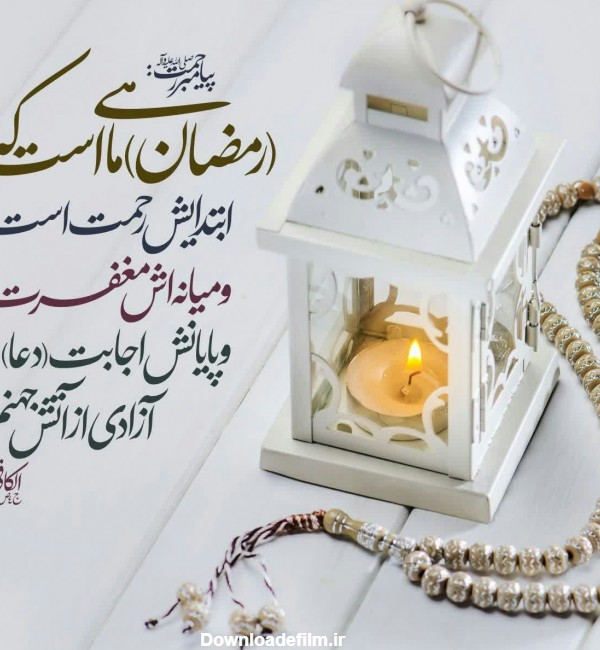 پیامبر رحمت صلی الله علیه وآله:
(رمضان) ماهی است که
ابتدایش رحمت است
و میانه اش مغفرت
و پایانش اجابت (دعا)
آزادی از آتش جهنم
Downloadefilm.ir